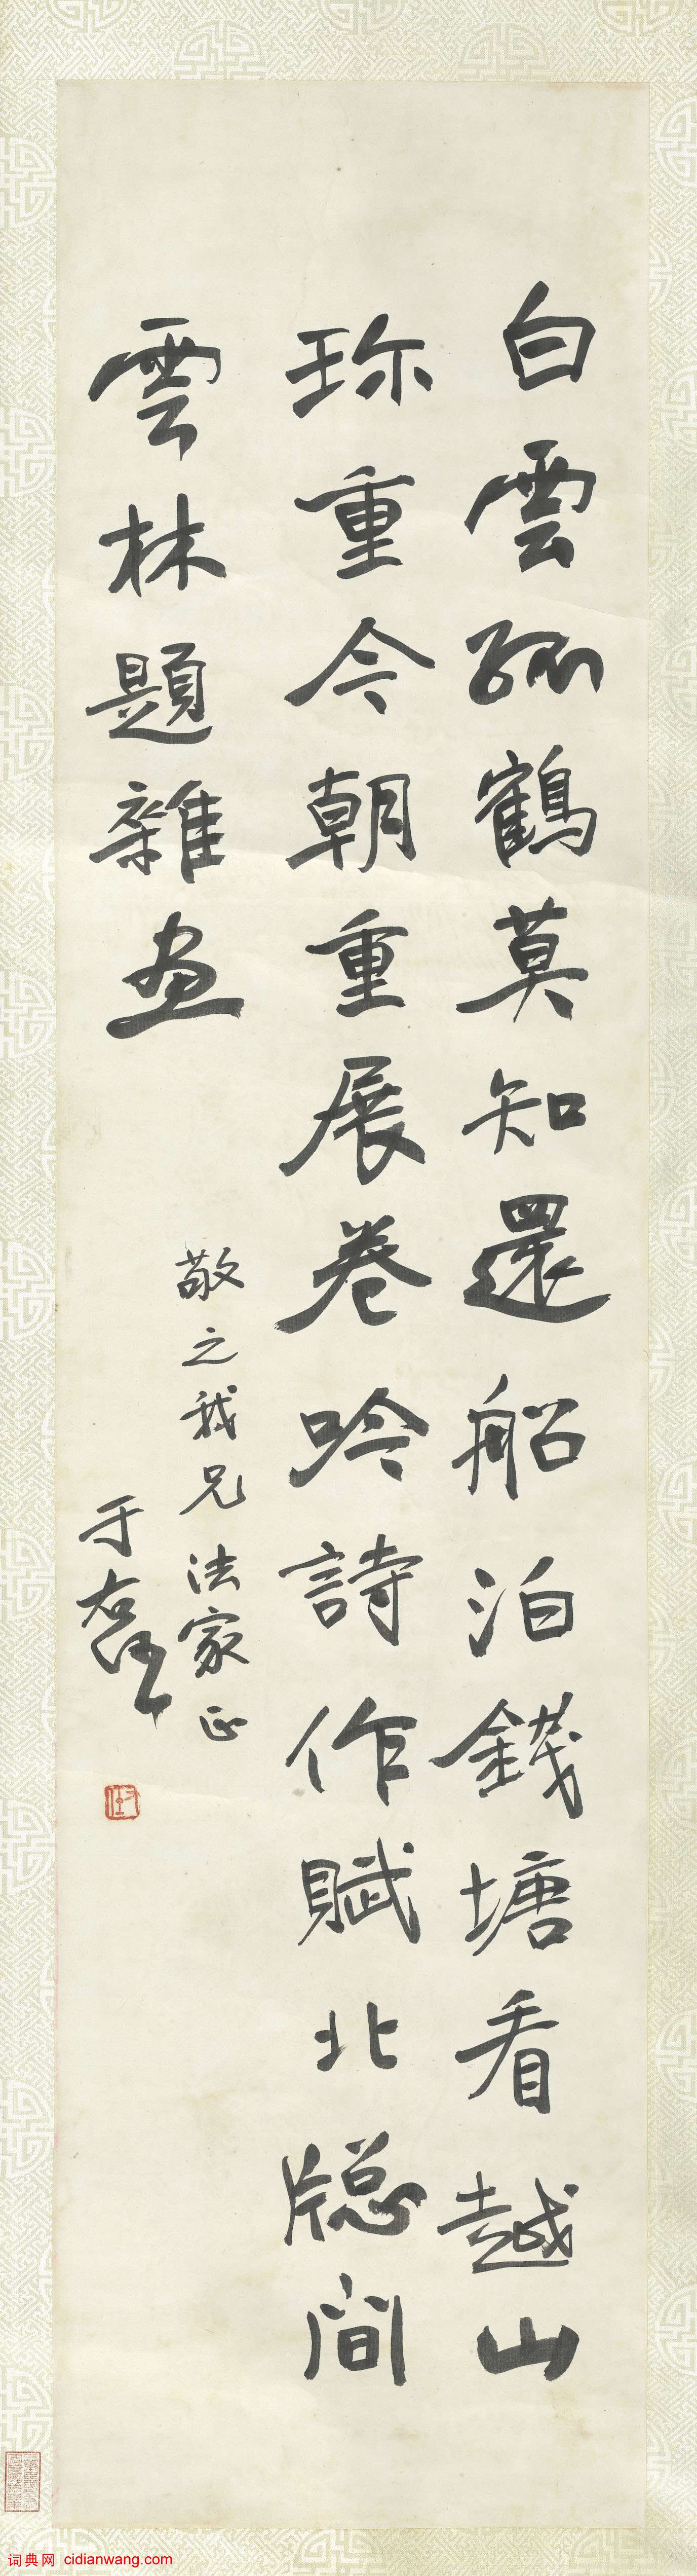 白雲孤鶴莫知還船泊錢塘看越山
珎重今朝重展卷吟詩作賦北牕間
雲林題雜画
敬之我兄法家正
于右任
词典网 cidianwang.com